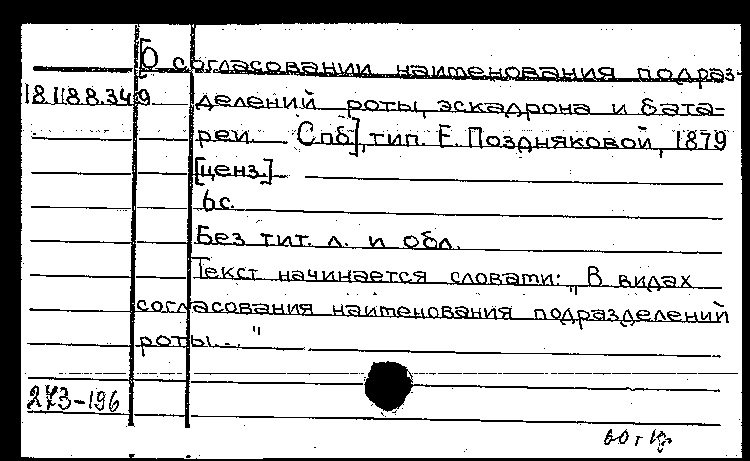 [О согласовании наименования подраз-
18.118.8.349 делений роты, эскадрона и бата-
реи. Спб], тип. Е. Поздняковой, 1879
[ценз.]
6с.
Без тит. л. и обл.
Текст начинается словати: „В видах
согласования наитенования подразделений
роты..."
273-196